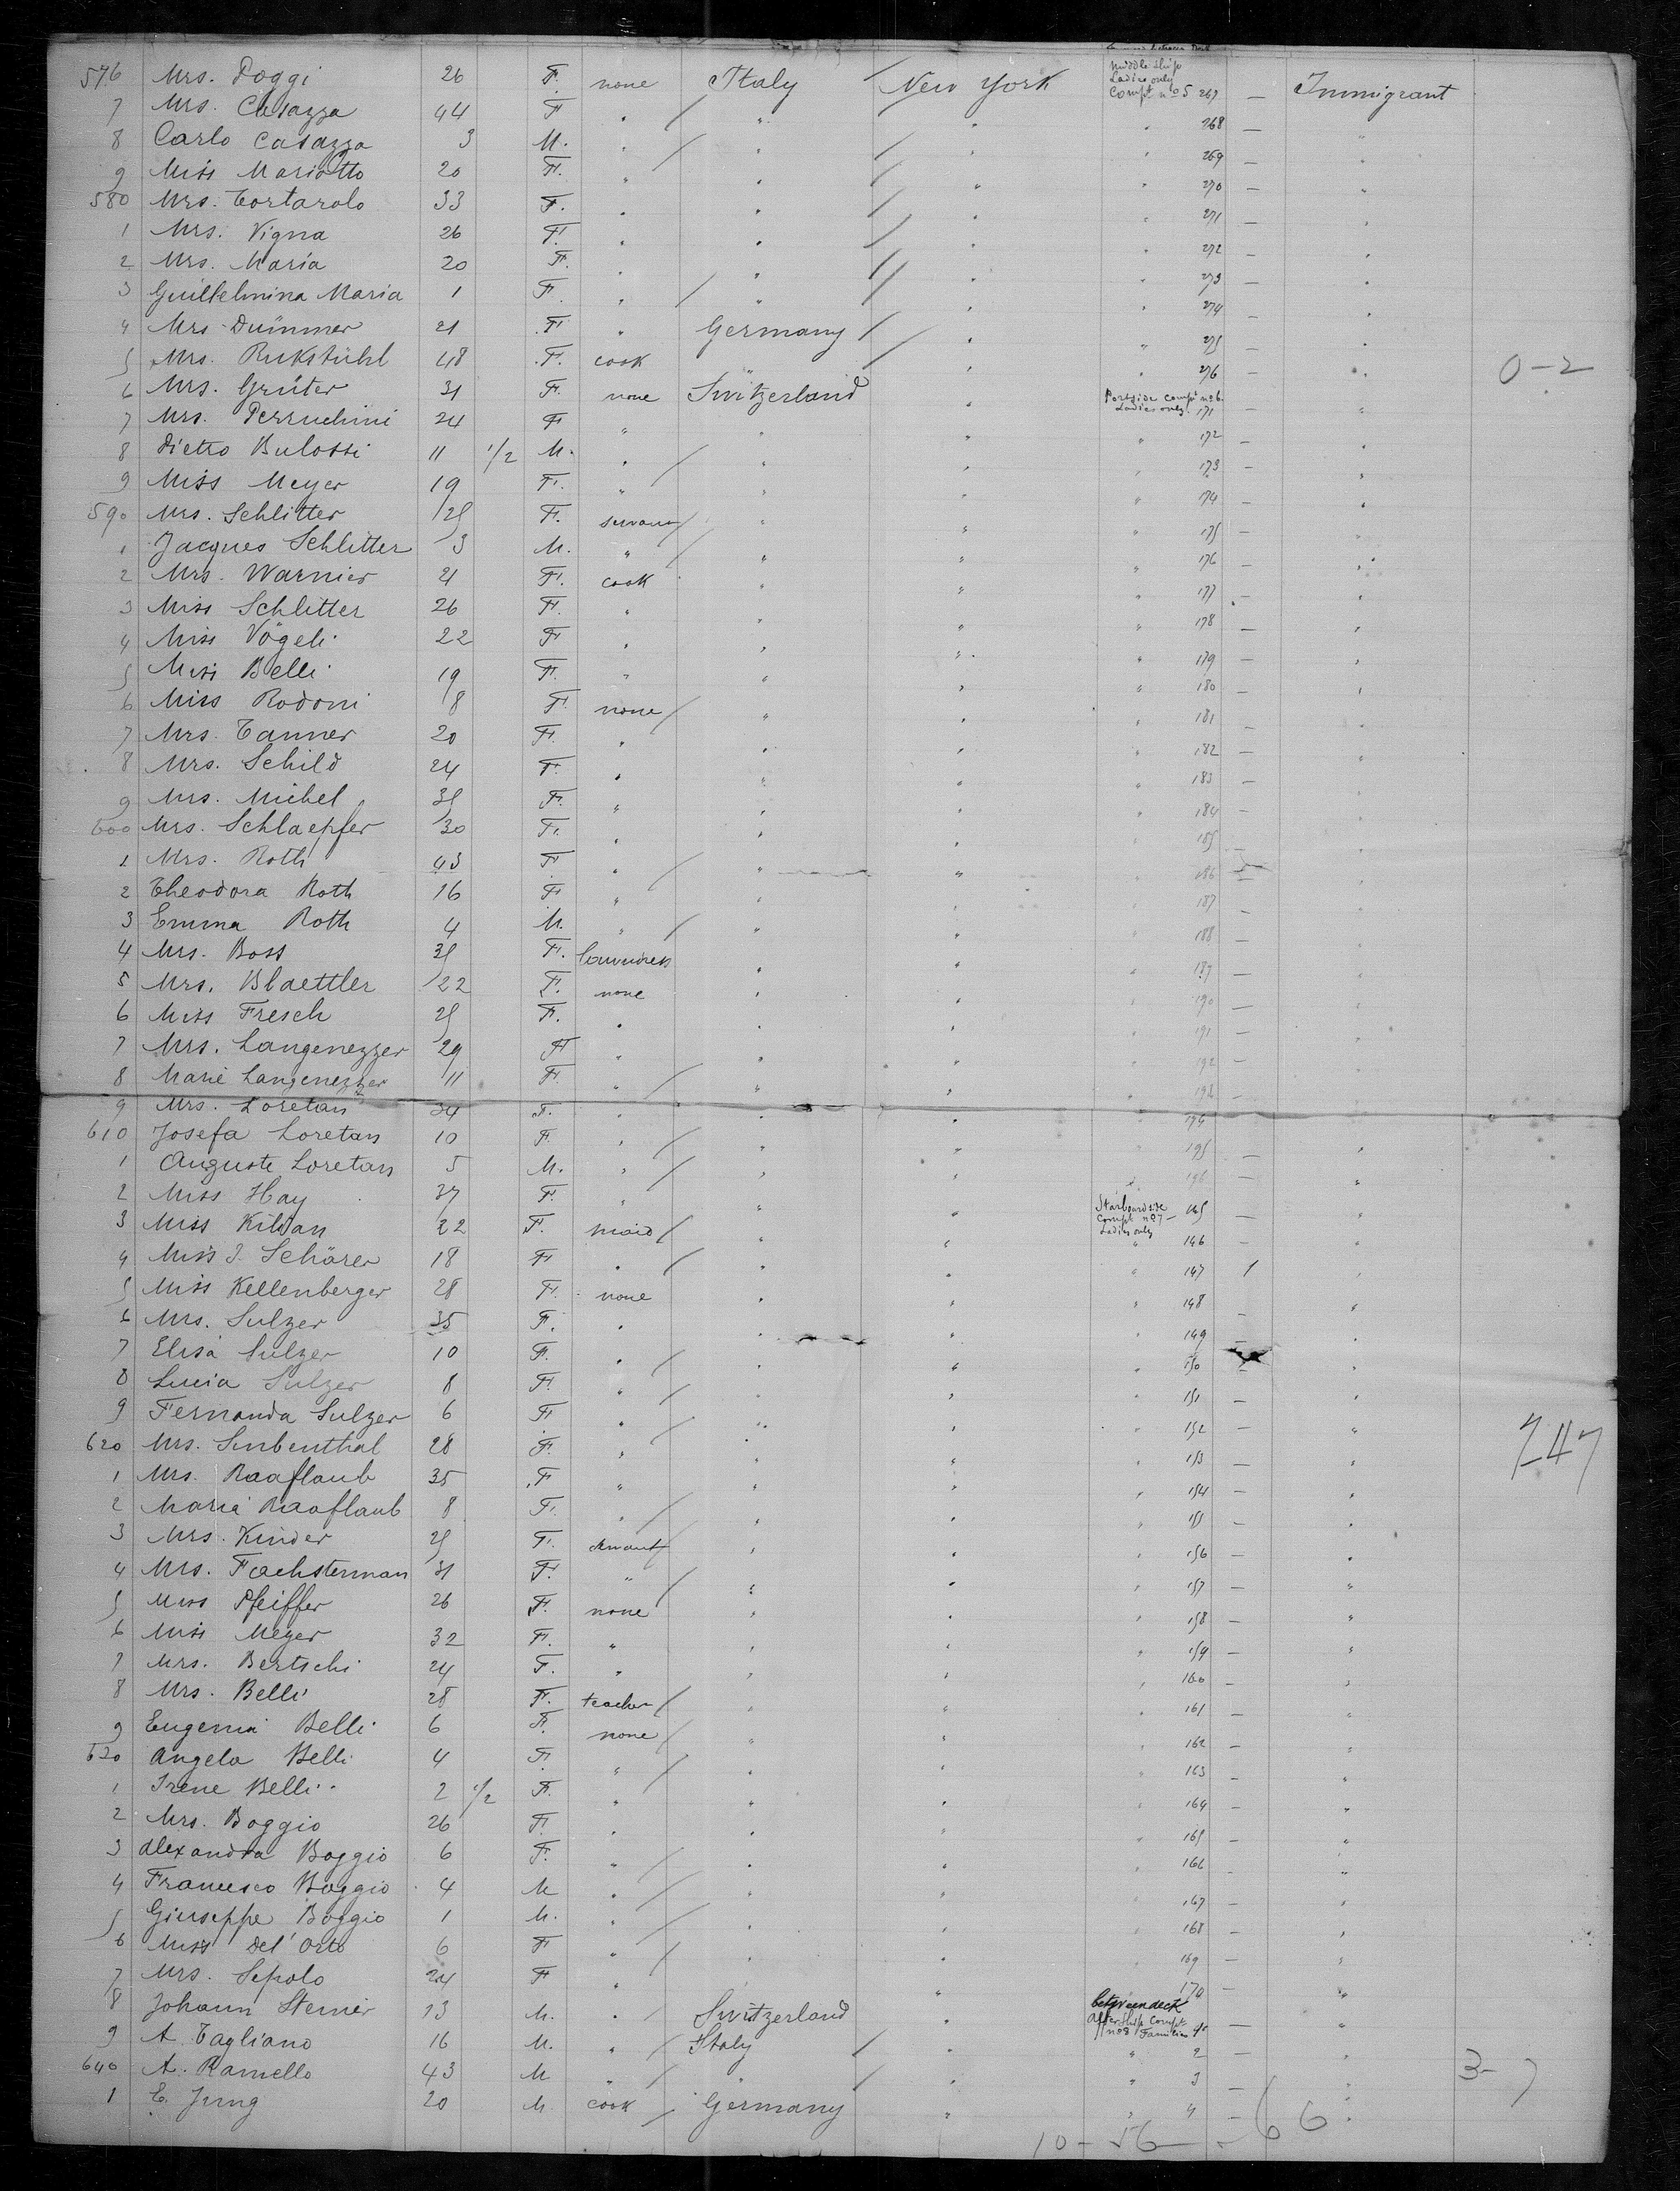 576 Mrs. Poggi 26 F. none Italy New York Middle Ship Ladies only Compt no 5 267 — Immigrant
7 Mrs. Casazza 44 F " / " " " 268 — "
8 Carlo Casazza 3 M. " / " / " " 269 — "
9 Miss Mariotto 20 F. " " / " " 270 — "
580 Mrs. Tortarolo 33 F. " " / " " 271 — "
1 Mrs. Vigna 26 F. " " / " " 272 — "
2 Mrs. Maria 20 F. " " / " " 273 — "
3 Guilhelmina Maria 1 F. " / " / " " 274 — "
4 Mrs Dümmer 21 F. " Germany / " " 275 — "
5 Mrs. Rukstühl 48 F. cook " / " " 276 — " 0-2
6 Mrs. Grüter 31 F. none Switzerland " Portside Compt no 6. Ladies only. 171 — "
7 Mrs. Perruchini 24 F " " " " 172 — "
8 Pietro Bulossi 11 1/2 M. " / " " " 173 — "
9 Miss Meyer 19 F. " " " " 174 — "
590 Mrs. Schlitter 25 F. servant / " " " 175 — "
1 Jacques Schlitter 3 M. " / " " " 176 — "
2 Mrs. Warnier 21 F. cook " " " 177 — "
3 Miss Schlitter 26 F. " " " " 178 — "
4 Miss Vögeli 22 F " " " " 179 — "
5 Miss Belli 19 F. " " " " 180 — "
6 Miss Rodoni 8 F. none / " " " 181 "
7 Mrs. Tanner 20 F. " " " " 182 — "
8 Mrs. Schild 24 F. " " " " 183 — "
9 Mrs. Michel 35 F. " " " " 184 — "
600 Mrs. Schlaepfer 30 F. " " " " 185 "
1 Mrs. Roth 43 F " / " " " 186 — "
2 Theodora Roth 16 F " " " " 187 — "
3 Emma Roth 4 M. " / " " " 188 — "
4 Mrs. Boss 35 F. " " " 189 — "
5 Mrs. Blaettler 22 F. none " " " 190 — "
6 Miss Fresch 25 F. " " " " 191 — "
7 Mrs. Langenezzer 29 F " " " " 192 — "
8 Marie Langenezzer 11 F. " / " " " 193 — "
9 Mrs. Loretan 34 F. " " " " 194
610 Josefa Loretan 10 F. " / " " " 195 — "
1 Auguste Loretan 5 M. " / " " " 196 — "
2 Miss Hay 37 F. " " " Starboard side Compt no 7 — Ladies only 145 — "
3 Miss Kilian 22 F. maid / " " " 146 — "
4 Miss J. Schärer 18 F " / " " " 147 1 "
5 Miss Kellenberger 28 F. none " " " 148 — "
6 Mrs. Sulzer 35 F. " " " " 149 — "
7 Elisa Sulzer 10 F. " / " " " 150 — "
8 Lucia Sulzer 8 F. " / " " " 151 — "
9 Fernanda Sulzer 6 F " / " " " 152 — "
620 Mrs. 28 F. " " " " 153 — " 247
1 Mrs. Raaflaub 35 F " " " " 154 — "
2 Maria Raaflaub 8 F. " / " " " 155 — "
3 Mrs. Kinder 25 F. servant " " " 156 — "
4 Mrs. Fachsterman 31 F. " / " " " 157 — "
5 Miss Pfeiffer 26 F. none " " " 158 — "
6 Miss Meyer 32 F. " " " " 159 — "
7 Mrs. Bertschi 24 F. " " " " 160 — "
8 Mrs. Belli 28 F. teacher / " " " 161 — "
9 Eugenia Belli 6 F. none / " " " 162 — "
630 Angela Belli 4 F. " / " " " 163 — "
1 Irene Belli 2 1/2 F. " " " " 164 — "
2 Mrs. Boggio 26 F. " " " " 165 — "
3 Alexandra Boggio 6 F. " / " " " 166 — "
4 Francesco Boggio 4 M " / " " " 167 — "
5 Giuseppe Boggio 1 M. " / " " " 168 — "
6 Miss Del' Orto 6 F " / " " " 169 — "
7 Mrs. Sepolo 24 F " " " 170 — "
8 Johann Steiner 13 M. " Switzerland " betweendeck After Ship Compt no 8 Families — "
9 A. Tagliano 16 M. " / Italy / " " 2 — "
640 A. Ramello 43 M " / " / " " 3 — " 3-7
1 E. Jung 20 M cook / Germany " " 4 — "
10-56 — 66